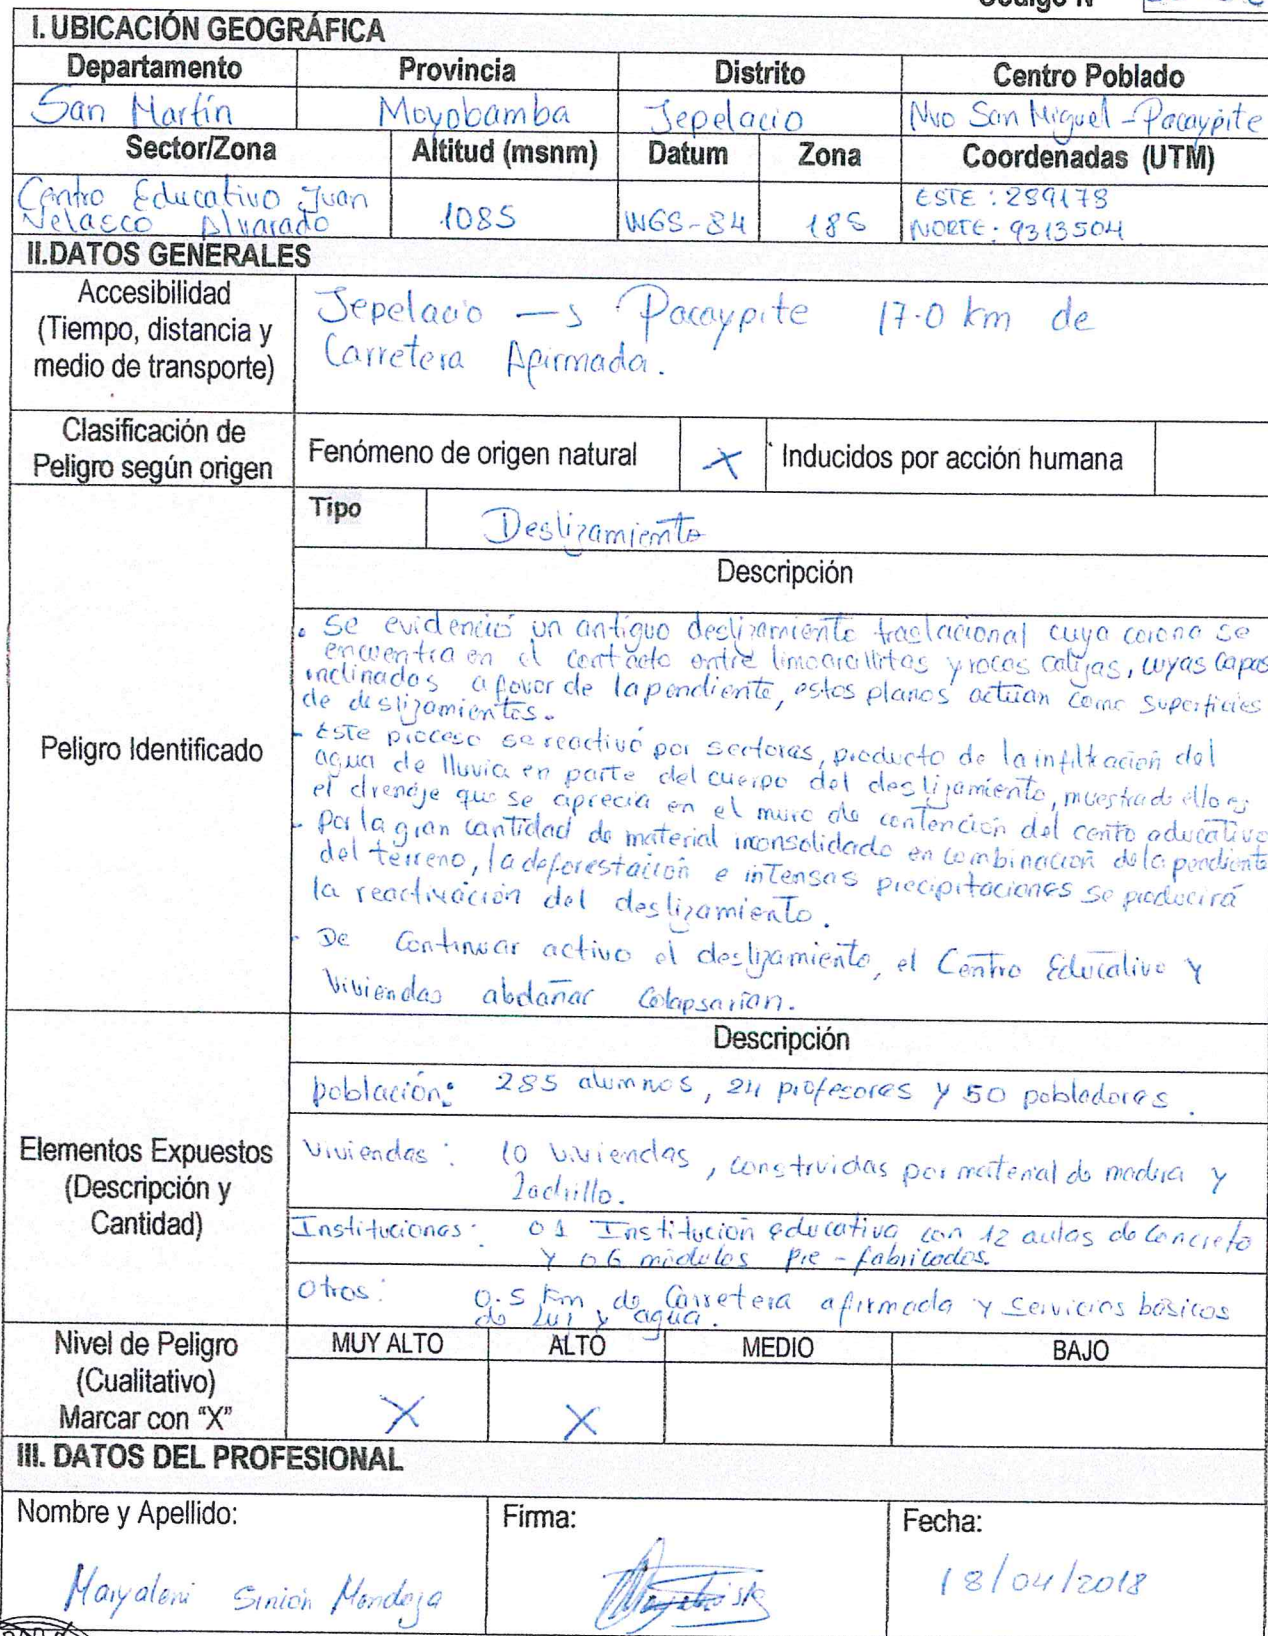 Código N°
I. UBICACIÓN GEOGRÁFICA
Departamento Provincia Distrito Centro Poblado
San Martín Moyobamba Jepelacio Nvo San Miguel - Pacaypite
Sector/Zona Altitud (msnm) Datum Zona Coordenadas (UTM)
Centro Educativo Juan
Velasco Alvarado
1085 WGS-84 18S
ESTE: 289178
NORTE: 9313504
II.DATOS GENERALES
Accesibilidad
(Tiempo, distancia y
medio de transporte)
Jepelacio → Pacaypite 17.0 km de
Carretera Afirmada.
Clasificación de
Peligro según origen
Fenómeno de origen natural X Inducidos por acción humana
Peligro Identificado
Tipo Deslizamiento
Descripción
. Se evidenció un antiguo deslizamiento traslacional cuya corona se
encuentra en el contacto entre limoarcillitas y rocas calizas, cuyas capas
inclinadas a favor de la pendiente, estos planos actúan como superficies
de deslizamientos.
- Este proceso se reactivó por sectores, producto de la infiltración del
agua de lluvia en parte del cuerpo del deslizamiento, muestra de ello es
el drenaje que se aprecia en el muro de contención del centro educativo
- Por la gran cantidad de material inconsolidado en combinación de la pendiente
del terreno, la deforestación e intensas precipitaciones se producirá
la reactivación del deslizamiento.
- De Continuar activo el deslizamiento, el Centro Educativo y
Viviendas abdañar Colapsarían.
Elementos Expuestos
(Descripción y
Cantidad)
Descripción
población: 285 alumnos, 24 profesores y 50 pobladores.
Viviendas: 10 viviendas, construidas por material de madera y
Ladrillo.
Instituciones: 01 Institución educativa con 12 aulas de Concreto
y 06 módulos Pre-fabricados.
Otros: 0.5 Km de Carretera afirmada y servicios básicos
de luz y agua.
Nivel de Peligro
(Cualitativo)
Marcar con "X"
MUY ALTO ALTO MEDIO BAJO
X X
III. DATOS DEL PROFESIONAL
Nombre y Apellido: Firma: Fecha:
Mendoza
18/04/2018